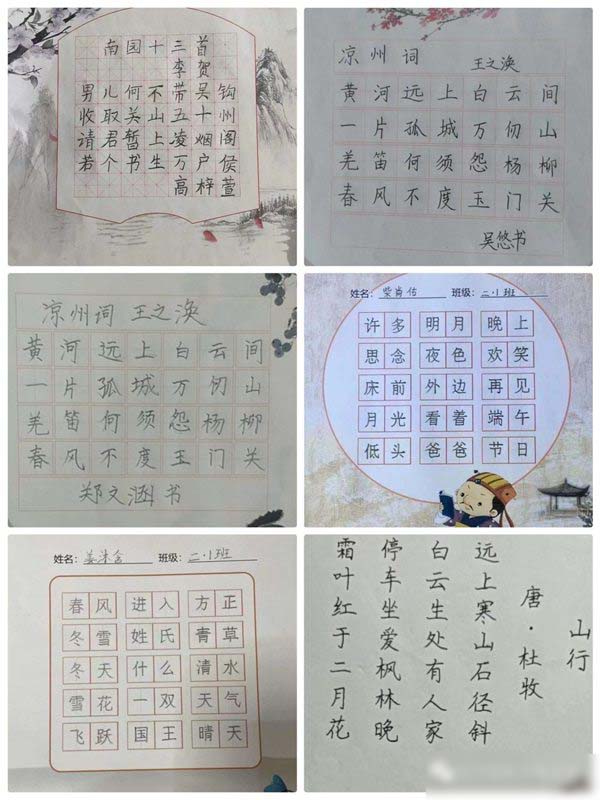 南园十三首
李贺
男儿何不带吴钩
收取关山五十州
请君暂上凌烟阁
若个书生万户侯
高梓萱
凉州词 王之涣
黄河远上白云间
一片孤城万仞山
羌笛何须怨杨柳
春风不度玉门关
吴悠书
凉州词 王之涣
黄河远上白云间
一片孤城万仞山
羌笛何须怨杨柳
春风不度玉门关
郑文涵书
姓名：柴肖佑 班级：二·1班
许多 明月 晚上
思念 夜色 欢笑
床前 外边 再见
月光 看着 端午
低头 爸爸 节日
姓名：姜沐含 班级：二·1班
春风 进入 方正
冬雪 姓氏 青草
冬天 什么 清水
雪花 一双 天气
飞跃 国王 晴天
山行
唐·杜牧
远上寒山石径斜
白云生处有人家
停车坐爱枫林晚
霜叶红于二月花